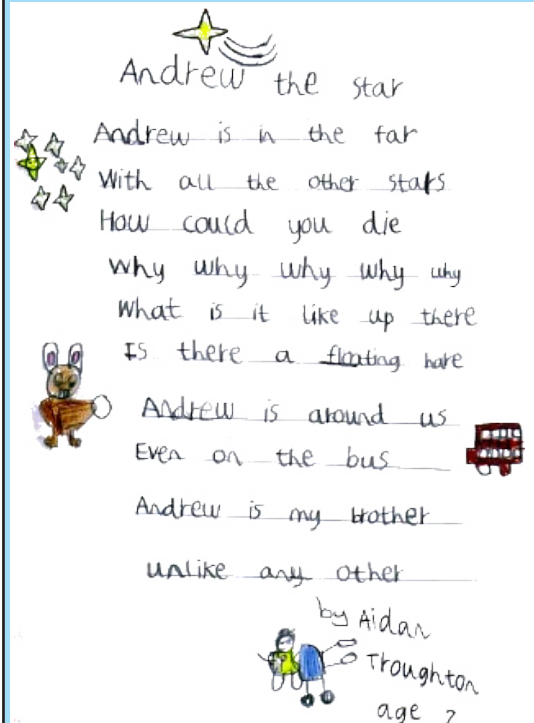 Andrew the star
Andrew is in the far
With all the other stars
How could you die
Why why why why why
What is it like up there
Is there a floating hare
Andrew is around us
Even on the bus
Andrew is my brother
unlike any other
by Aidan
Troughton
age